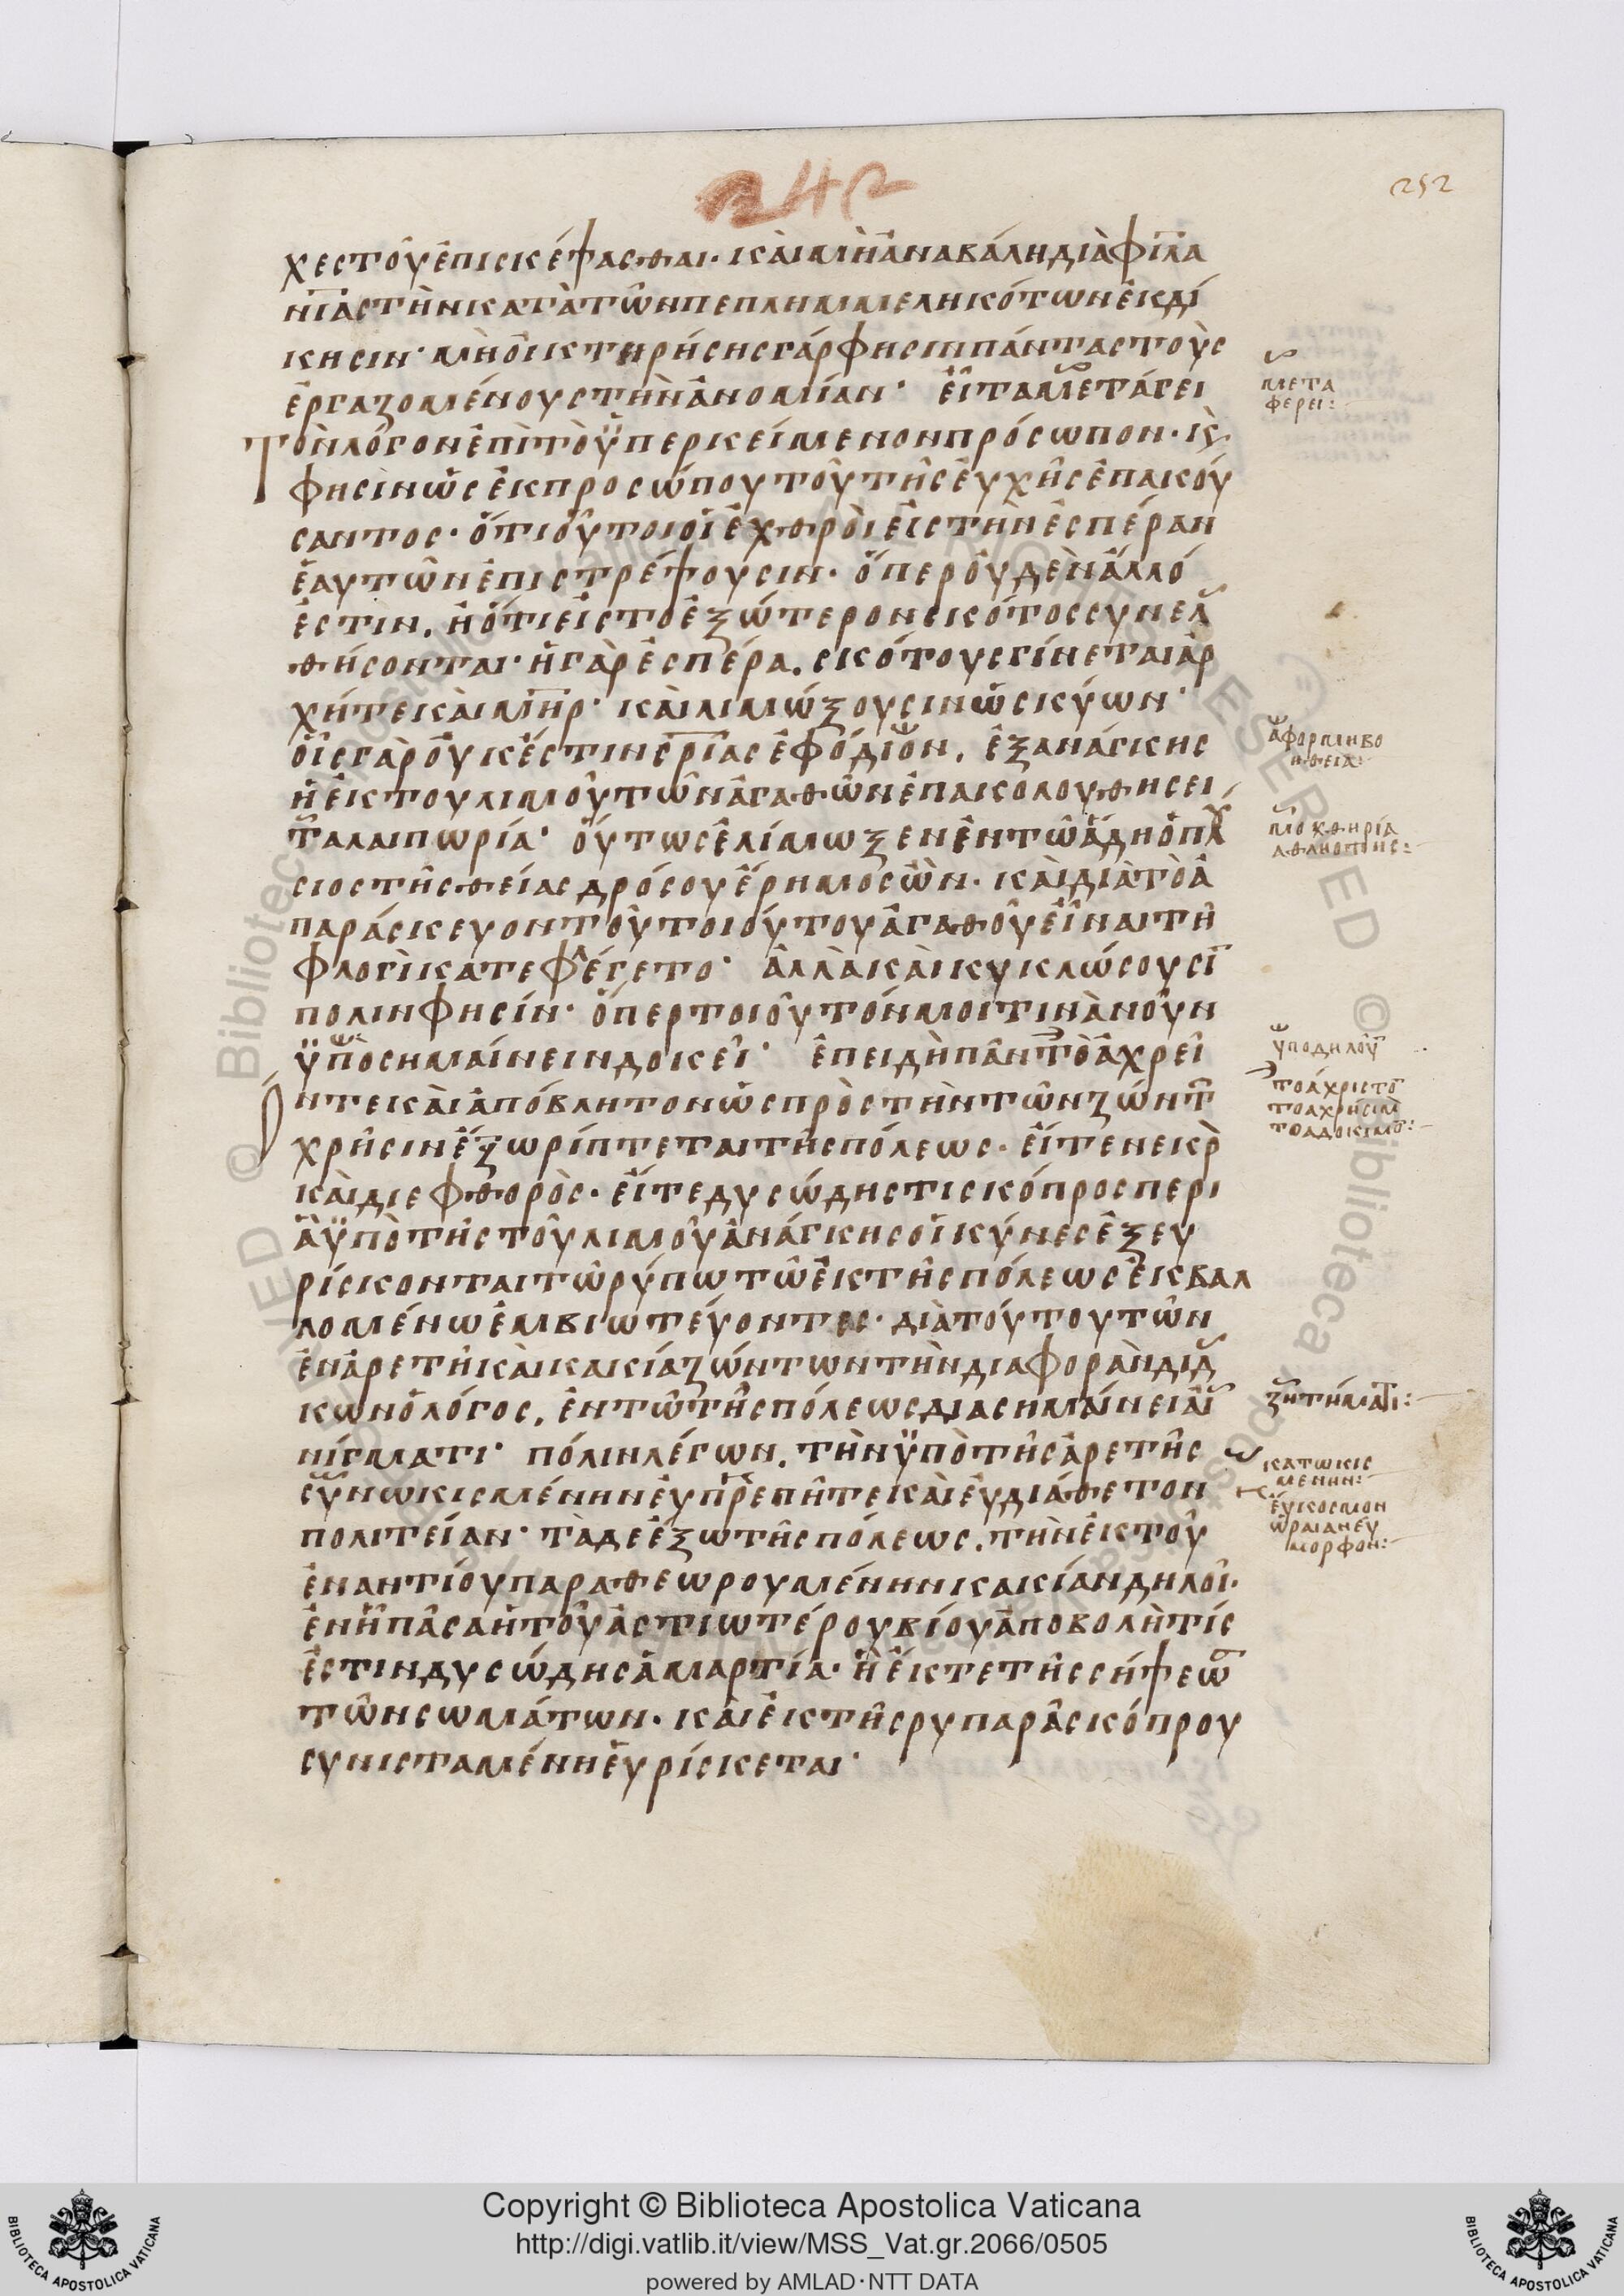 252
χεςτοῦἐπισκέψασθαι· καὶμὴἀναβάληδιὰφιλα
νιαςτὴνκατὰτῶνπεπλημμεληκότωνἐκδί
κησιν· μὴοἰκτηρήσηςγάρφησιπάνταςτοὺς
ἐργαζομένουςτὴνἀνομίαν· εἶταμετάγει
τὸνλόγονἐπὶτὸϋπερκείμενονπρόσωπον· κ̀
φησὶνὡςἐκπροσώπουτοῦτῆςεὐχῆςἐπακού
σαντος· ὅτιοὗτοιοἱἐχθρὸιεἰςτὴνἑσπέραν
ἑαυτῶνἐπιστρέψουσιν· ὅπεροὐδὲνἄλλό
ἐστιν. ἢὅτιεἰςτοἐξώτερονσκότοςσυνελ
θήσονται· ἡγὰρἑσπέρα. σκότουςγίνεταιἀρ
χήτεκαὶμηρ· καὶλιμώξουσινὡςκύων·
οἷςγὰροὐκἔστινσριαςἐφόδιον. ἐξανάγκης
ἡἐκτουλιμοῦτῶνἀγαθῶνἐπακολουθησει
ταλαιπωρία· οὕτωςἐλίμωξενἐντῶἅδηὁπλ
σιοςτῆςθείαςδρόσουἔρημοςὢν· καὶδιὰτὸἀ
παράσκευοντοῦτοιούτουἀγαθοῦεἶναιτῆ
φλογὶκατεφλέγετο· ἀλλὰκαὶκυκλώσουσι
πολινφησίν· ὅπερτοιοῦτόνμοιτινὰνοῦν
ϋποσημαίνεινδοκεῖ· ἐπειδὴπᾶντὸἀχρεῖ
ντεκαὶἀπόβλητονὡςπρὸςτὴντῶνζώντ
χρῆσινἔξωρίπτεταιτῆςπόλεως· εἴτενεκρὸ
καὶδιεφθορὸς· εἴτεδυσώδηςτισκόπροςπερι
ἃϋπὸτῆςτοῦλιμοῦἀνάγκηςοἱκύνεςἐξευ
ρίσκονταιτῶρύπωτῶἐκτῆςπόλεωςἐκβαλ
λομένωἐμβιωτεύοντες· διὰτούτουτῶν
ἐνἀρετῆκαὶκακίαζώντωντὴνδιαφορὰνδιδ
κωνὁλόγος. ἐντῶτῆςπόλεωςδιασημαίνειαἰ
νίγματι· πόλινλέγων. τὴνϋπὸτῆςἀρετῆς
συνωκισμένηνεὐπρεπῆτεκαὶεὐδιάθετον
πολιτείαν· τὰδεἔξωτῆςπόλεως. τὴνἐκτοῦ
ἐναντίουπαραθεωρουμένηνκακίανδηλοῖ·
ἐνἧπᾶσαἡτοῦἀστιωτέρουβίουἀποβολὴτίς
ἐστινδυσώδηςἁμαρτία· ἢἔκτετῆςσήψεως
τῶνσωμάτων· καὶἐκτῆςρυπαρᾶςκόπρου
συνισταμένηεὑρίσκεται·
μετα
φερει:
ἀφορμηβο
ηθεια:
μοχθηρία
αθλιοτης:
ϋποδηλοῦ
τοάχριστο
τοαχρησιμ
τοαδοκιμο:
ζητήματι:
κατωκις
μενην:
εὐκοσμον
ὡραιανεὐ
μορφον:
Copyright © Biblioteca Apostolica Vaticana
http://digi.vatlib.it/view/MSS_Vat.gr.2066/0505
powered by AMLAD·NTT DATA
BIBLIOTECA APOSTOLICA VATICANA
BIBLIOTECA APOSTOLICA VATICANA